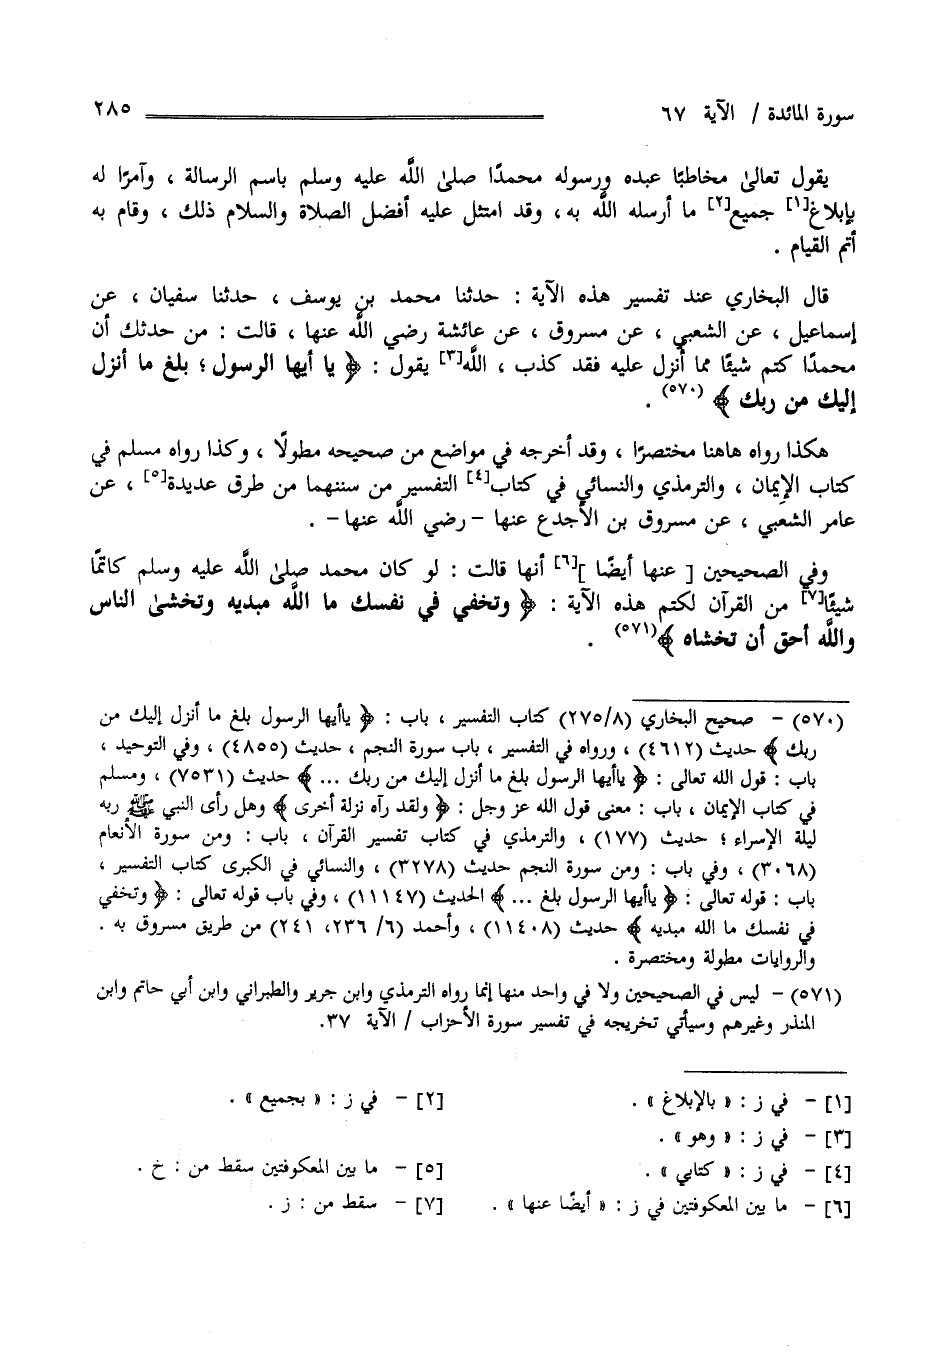 سورة المائدة / الآية ٦٧ ٢٨٥
يقول تعالىٰ مخاطبًا عبده ورسوله محمدًا صلىٰ اللَّه عليه وسلم باسم الرسالة ، وآمرًا له
بإبلاغ[١] جميع[٢] ما أرسله اللَّه به، وقد امتثل عليه أفضل الصلاة والسلام ذلك ، وقام به
أتم القيام .
قال البخاري عند تفسير هذه الآية : حدثنا محمد بن يوسف ، حدثنا سفيان ، عن
إسماعيل ، عن الشعبي ، عن مسروق ، عن عائشة رضي اللَّه عنها ، قالت : من حدثك أن
محمدًا كتم شيئًا مما أُنزل عليه فقد كذب ، اللَّه[٣] يقول : ﴿ يا أيها الرسول ؛ بلغ ما أنزل
إليك من ربك ﴾ (٥٧٠) .
هكذا رواه هاهنا مختصرًا ، وقد أخرجه في مواضع من صحيحه مطولًا ، وكذا رواه مسلم في
كتاب الإيمان ، والترمذي والنسائي في كتاب[٤] التفسير من سننهما من طرق عديدة[٥] ، عن
عامر الشعبي ، عن مسروق بن الأجدع عنها -رضي اللَّه عنها- .
وفي الصحيحين [ عنها أيضًا ][٦] أنها قالت : لو كان محمد صلىٰ اللَّه عليه وسلم كاتمًا
شيئًا[٧] من القرآن لكتم هذه الآية : ﴿ وتخفي في نفسك ما اللَّه مبديه وتخشىٰ الناس
واللَّه أحق أن تخشاه ﴾(٥٧١) .
(٥٧٠) - صحيح البخاري (٢٧٥/٨) كتاب التفسير ، باب : ﴿ ياأيها الرسول بلغ ما أنزل إليك من
ربك ﴾ حديث (٤٦١٢) ، ورواه في التفسير ، باب سورة النجم ، حديث (٤٨٥٥) ، وفي التوحيد ،
باب : قول الله تعالى : ﴿ ياأيها الرسول بلغ ما أنزل إليك من ربك ... ﴾ حديث (٧٥٣١) ، ومسلم
في كتاب الإيمان ، باب : معنى قول الله عز وجل : ﴿ ولقد رآه نزلة أخرى ﴾ وهل رأى النبي ﷺ ربه
ليلة الإسراء ؛ حديث (١٧٧) ، والترمذي في كتاب تفسير القرآن ، باب : ومن سورة الأنعام
(٣٠٦٨) ، وفي باب : ومن سورة النجم حديث (٣٢٧٨) ، والنسائي في الكبرى كتاب التفسير ،
باب : قوله تعالى : ﴿ ياأيها الرسول بلغ ... ﴾ الحديث (١١١٤٧) ، وفي باب قوله تعالى : ﴿ وتخفي
في نفسك ما الله مبديه ﴾ حديث (١١٤٠٨) ، وأحمد (٦/ ٢٣٦، ٢٤١) من طريق مسروق به .
والروايات مطولة ومختصرة .
(٥٧١) - ليس في الصحيحين ولا في واحد منها إنما رواه الترمذي وابن جرير والطبراني وابن أبي حاتم وابن
المنذر وغيرهم وسيأتي تخريجه في تفسير سورة الأحزاب / الآية ٣٧.
[١] - في ز : « بالإبلاغ » . [٢] - في ز : « بجميع » .
[٣] - في ز : « وهو » .
[٤] - في ز : « كتابي » . [٥] - ما بين المعكوفتين سقط من : خ .
[٦] - ما بين المعكوفتين في ز : « أيضًا عنها » . [٧] - سقط من : ز .